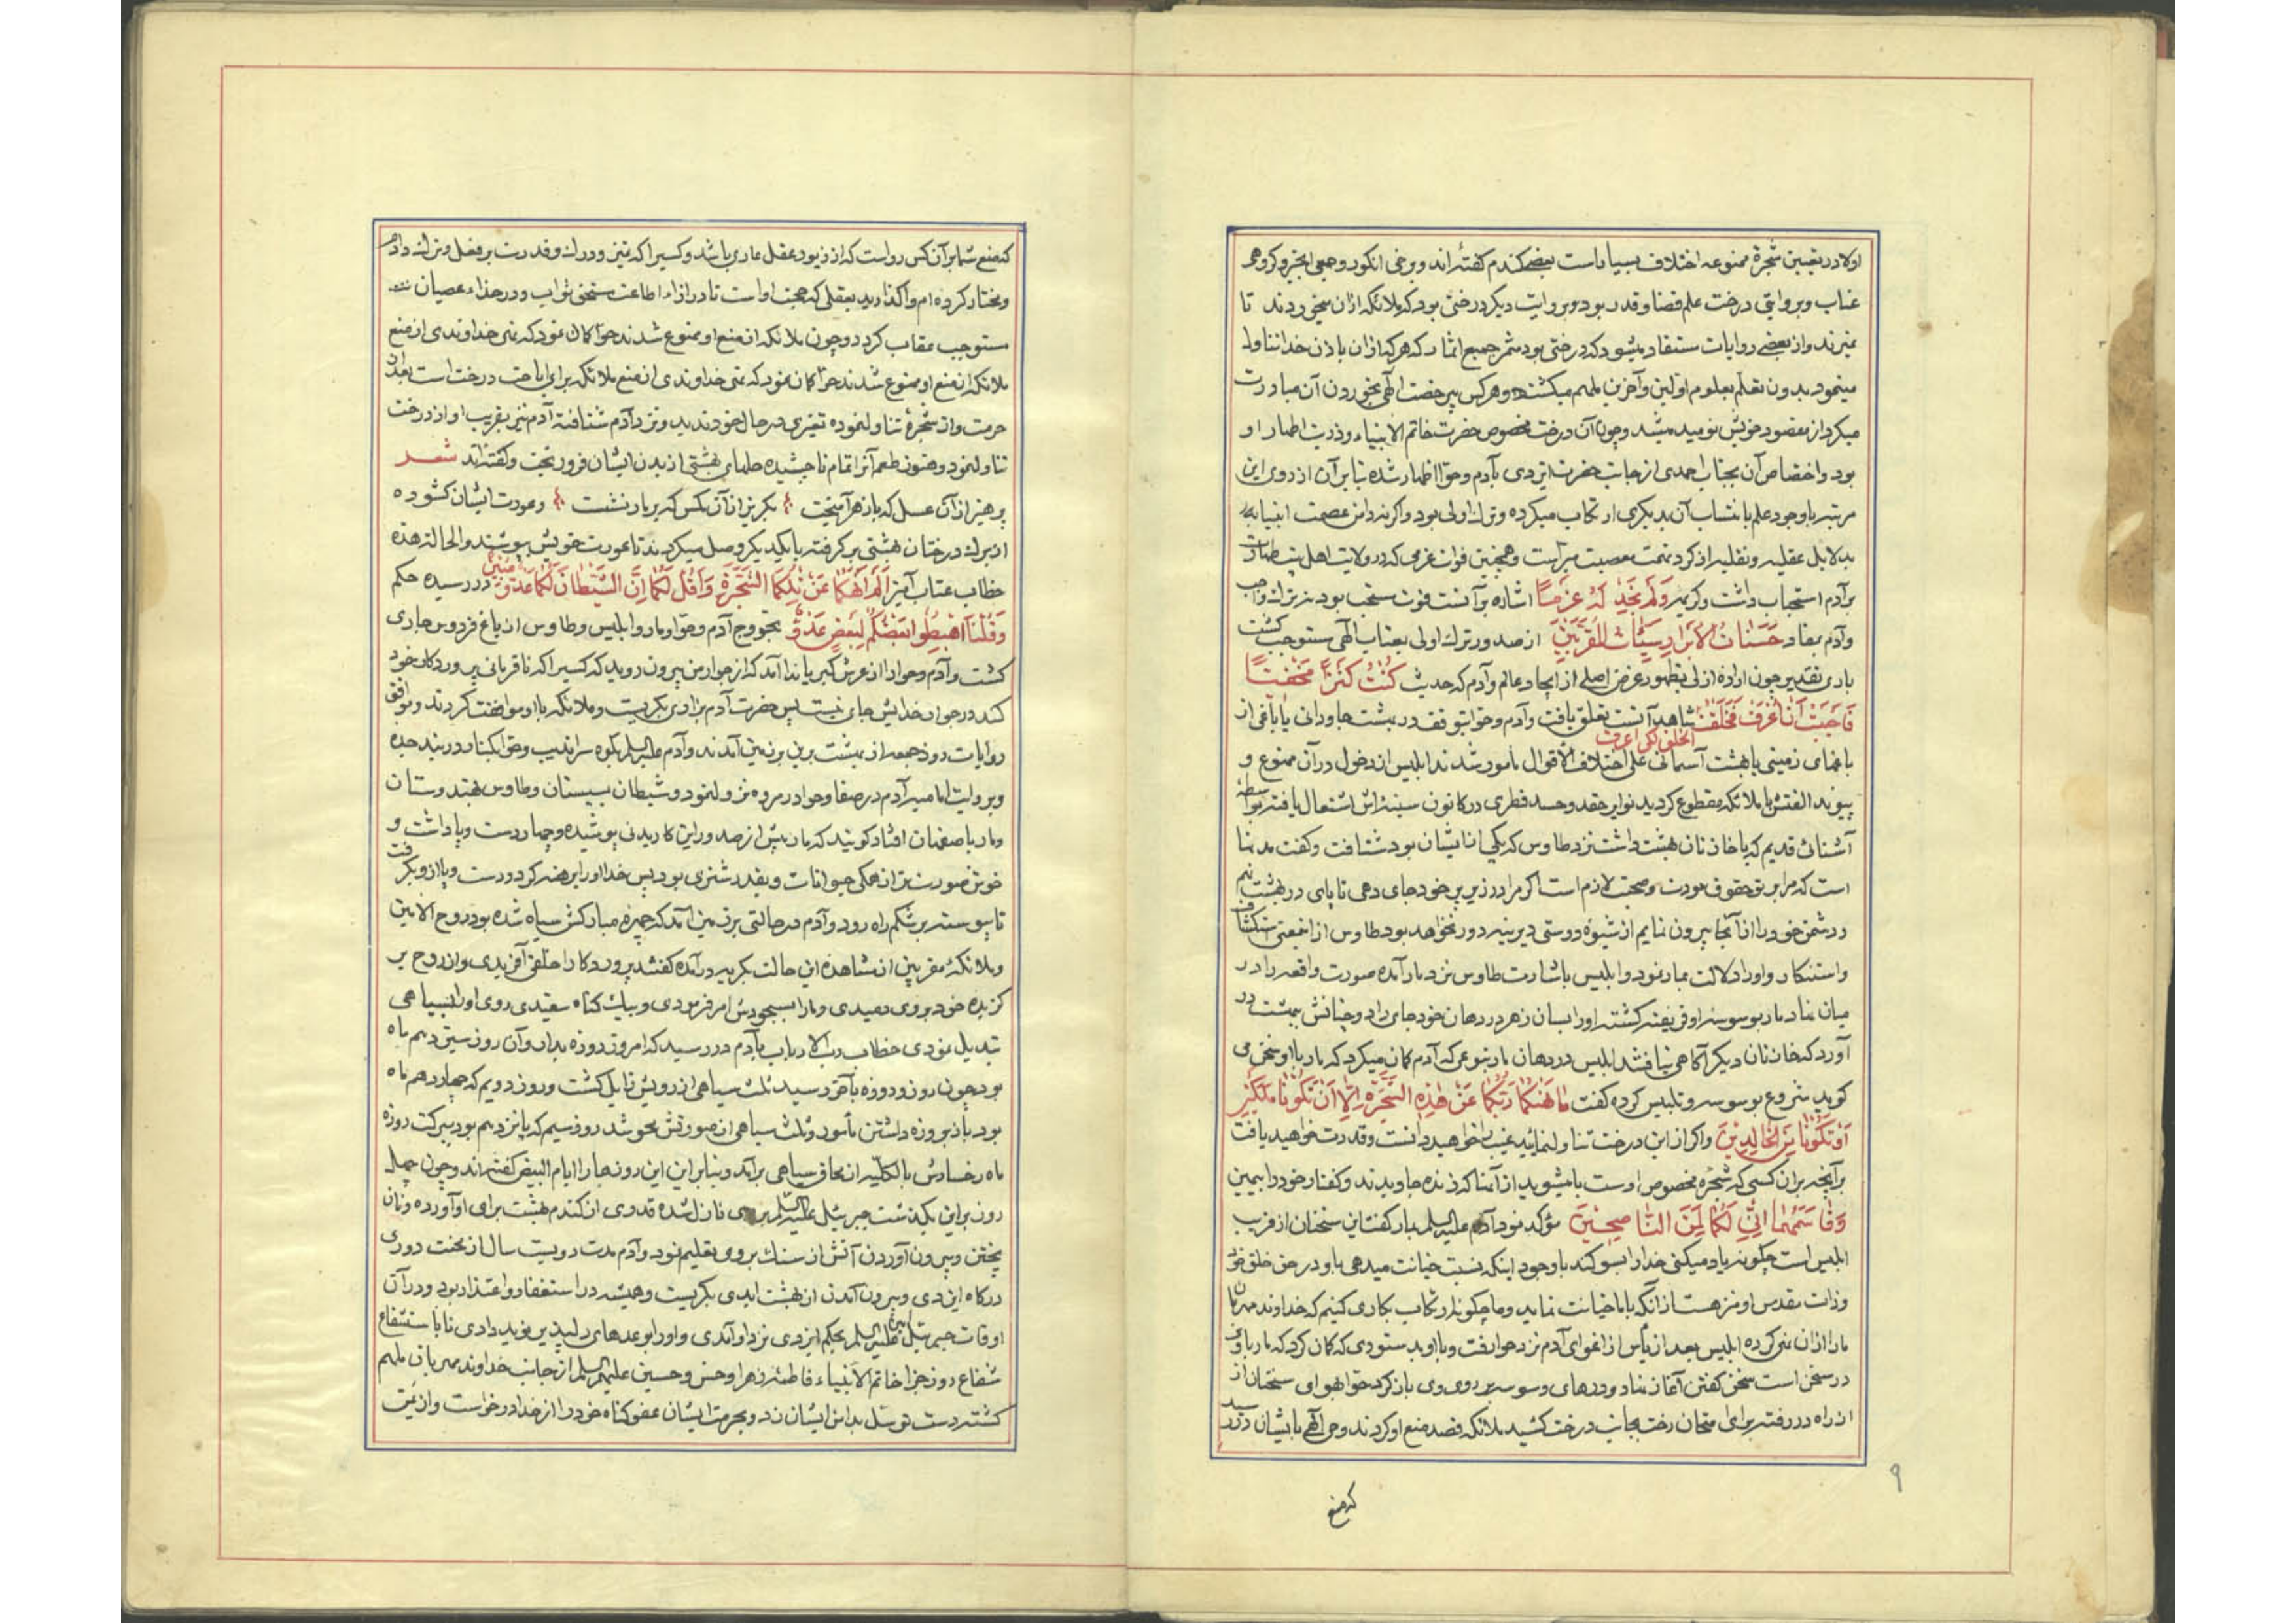 اولاد در تعیین شجرهٔ ممنوعه اختلاف بسیار است بعضی گندم گفته‌اند و برخی انگور و جمعی انجیر و گروهی
عناب و بروایتی درخت علم قضا و قدر بود و بروایت دیگر درختی بود که ملائکه ازان میخوردند تا
نمیرند و از بعضی روایات مستفاد میشود که درختی بود مثمر جمیع اثمار که هر که ازان باذن خدا تناول
مینمود بدون تعلّم بعلوم اولین و آخرین ملهم میگشت و هر کس بیرخصت الهی بخوردن آن مبادرت
میکرد از مقصود خویش نومید میشد و چون آن درخت مخصوص حضرت خاتم الانبیاء و ذریت اطهار او
بود و اختصاص آن بجناب احمدی از جانب حضرت ایزدی بآدم و حوا اظهار شده بنابرآن از روی این
مرتبه با وجود علم بانتساب آن بدیگری ارتکاب میکرده و ترک اولی بود و اگرنه دامن عصمت انبیا به
بدلایل عقلیه و نقلیه از گرد تهمت معصیت مبراست و همچنین فوات عزمی که در ولایت اهل بیت طهارت
برآدم استحباب داشت و کریمه وَلَمْ نَجِدْ لَهُ عَزْمًا اشاره برآنست فوت مستحب بود نه ترک واجب
وآدم بمفاد حَسَنَاتُ الْاَبْرَارِ سَیِّئَاتُ الْمُقَرَّبِینَ از صدور ترک اولی بعتاب الهی مستوجب گشت
باری بتقدیر چون ارادهٔ ازلی بظهور غرض اصلی از ایجاد عالم و آدم که حدیث کُنْتُ کَنْزًا مَخْفِیًّا
فَاَحْبَبْتُ اَنْ اُعْرَفَ فَخَلَقْتُ الخلق لکی اعرف شاهد آنست تعلق یافت و آدم و حوا بتوقف در بهشت جاودانی یا باغی از
باغهای زمینی یا بهشت آسمانی علی اختلاف الاقوال مأمور شدند ابلیس از دخول درآن ممنوع و
پیوند الفتش با ملائکه مقطوع گردید نوایر حقد و حسد فطری در کانون سینه‌اش اشتعال یافته بواسطهٔ
آشنائی قدیم که با خازنان بهشت داشت نزد طاوس که یکی ازایشان بود شتافت و گفت مدتها
است که مرا بر تو حقوق مودت و صحبت لازم است اگر مرا در زیر پر خود جای دهی تا پای در بهشت نهم
و دشمن خود را از آنجا بیرون نمایم از شیوهٔ دوستی دیرینه دور نخواهد بود طاوس از اینمعنی استنکاف
و استنکار و او را دلالت بمار نمود و ابلیس باشارت طاوس نزد مار آمده صورت واقعه را در
میان نهاد مار بوسوسهٔ او فریفته گشته او را بسان زهر در دهان خود جای داد و چنانش ببهشت در
آورد که خازنان دیگر آگاهی نیافتند ابلیس در دهان مار بنوعی که آدم گمان میکرد که مار با او سخن می
گوید شروع بوسوسه و تلبیس کرده گفت مَا نَهٰیکُمَا رَبُّکُمَا عَنْ هٰذِهِ الشَّجَرَةِ اِلَّا اَنْ تَکُونَا مَلَکَیْنِ
اَوْ تَکُونَا مِنَ الْخَالِدِینَ و اگر از این درخت تناول نمائید غیب را خواهید دانست و قدرت خواهید یافت
برآنچه برآن کسی که شجره مخصوص اوست یا میشوید از آنها که زنده جاویدند و گفتار خود را بیمین
وَقَاسَمَهُمَا اِنِّی لَکُمَا لَمِنَ النَّاصِحِینَ مؤکد نمود آدم علیه السلم بمار گفت این سخنان از فریب
ابلیس است چگونه یاد میکنی خدا را بسوگند با وجود اینکه نسبت خیانت میدهی باو در حق خلق خود
و ذات مقدس او منزهست ازانکه با ما خیانت نماید و ما چگونه ارتکاب بکاری کنیم که خداوند مهربان
ما را ازان نهی کرده ابلیس بعد از یأس از اغوای آدم نزد حوا رفت و با او بدستوری که گمان کرد که مار با وی
در سخن است سخن گفتن آغاز نهاد و درهای وسوسه بر روی وی باز کرد حوا بهوای سخنان از
از راه در رفته برای امتحان رخت بجانب درخت کشید ملائکه قصد منع او کردند وحی الهی بایشان در رسید
که منع
۹
که منع شما برآن کس رواست که از زیور عقل عاری باشد و کسیرا که تمیز و درک و قدرت بر فعل و ترک دادم
و مختار کرده‌ام واگذارید بعقلی که حجت اوست تا در ازاء اطاعت مستحق ثواب و در جزاء عصیان
مستوجب عقاب گردد و چون ملائکه از منع او ممنوع شدند حوا گمان نمود که نهی خداوندی از منع
ملائکه از منع او ممنوع شدند حوا گمان نمود که نهی خداوندی از منع ملائکه برای اباحت درخت است بعد از
حرمت و از شجره تناول نموده تغیری در حال خود ندید و نزد آدم شتافته آدم نیز بفریب او از درخت
تناول نمود و هنوز طعم آنرا تمام ناچشیده حلهای بهشتی از بدن ایشان فرو ریخت و گفته‌اند شعر
پرهیز از آن عسل که با زهر آمیخت بگریز ازآن مگس که بر مار نشست و عورت ایشان گشوده
از برگ درختان بهشتی برگرفته بایکدیگر وصل میکردند تا عورت خویش بپوشند و الحالة هذه
خطاب عتاب آمیز اَلَمْ اَنْهَکُمَا عَنْ تِلْکُمَا الشَّجَرَةِ وَاَقُلْ لَکُمَا اِنَّ الشَّیْطَانَ لَکُمَا عَدُوٌّ مُبِینٌ در رسیده حکم
وَقُلْنَا اهْبِطُوا بَعْضُکُمْ لِبَعْضٍ عَدُوٌّ بخروج آدم و حوا و مار و ابلیس و طاوس از باغ فردوس جاری
گشت و آدم و حوا را از عرش کبریا ندا آمد که از جوار من بیرون روید که کسیرا که نافرمانی پروردگار خود
کند در جوار خدایش جای نیست پس حضرت آدم بزاری بگریست و ملائکه با او موافقت کردند و موافق
روایات روز جمعه از بهشت برین بر زمین آمدند و آدم علیه السلم بکوه سراندیب و حوا بکنار دریند جده
و بروایت امامیه آدم در صفا و حوا در مروه نزول نمود و شیطان بسیستان و طاوس بهندوستان
و مار باصفهان افتاد گویند که مار پیش از صدور این کار بدنی پوشیده و چهار دست و پا داشت و
خوش صورت‌تر از همگی حیوانات و بقدر شتری بود پس خدا او را برهنه کرد و دست و پا از او بگرفت
تا پیوسته بر شکم راه رود و آدم در حالتی بر زمین آمد که چهره مبارکش سیاه شده بود روح الامین
و ملائکهٔ مقربین از مشاهده این حالت بگریه درآمده گفتند پروردگارا خلقی آفریدی و از روح بر
گزیده خود بر وی دمیدی و ما را بسجودش امر فرمودی و بیک گناه سفیدی روی او را بسیاهی
تبدیل نمودی خطاب رب الارباب بآدم در رسید که امروز روزه بدار و آن روز سیزدهم ماه
بود چون روز و روزه بآخر رسید ثلث سیاهی از رویش زایل گشت و روز دویم که چهاردهم ماه
بود باز بروزه داشتن مأمور و ثلث سیاهی از صورتش محو شد روز سیم که پانزدهم بود ببرکت روزه
ماه رخسارش بالکلیه از محاق سیاهی برآمد و بنابراین این روزها را ایام البیض گفته‌اند و چون چهل
روز براین بگذشت جبرئیل علیه السلم بر وی نازل شده قدری از گندم بهشت برای او آورده و نان
پختن و بیرون آوردن آتش از سنگ بر وی تعلیم نمود و آدم مدت دویست سال از محنت دوری
درگاه ایزدی و بیرون آمدن از بهشت ابدی بگریست و همیشه در استغفار و اعتذار بود و درآن
اوقات جبرئیل امین علیه السلم بحکم ایزدی نزد او آمدی و او را بوعدهای دلپذیر نوید دادی تا باستشفاع
شفاع روز جزا خاتم الانبیاء فاطمهٔ زهرا و حسن و حسین علیهم السلم از جانب خداوند مهربان ملهم
گشته دست توسل بدامن ایشان زد و بحرمت ایشان عفو گناه خود را از خدا درخواست و از یمن